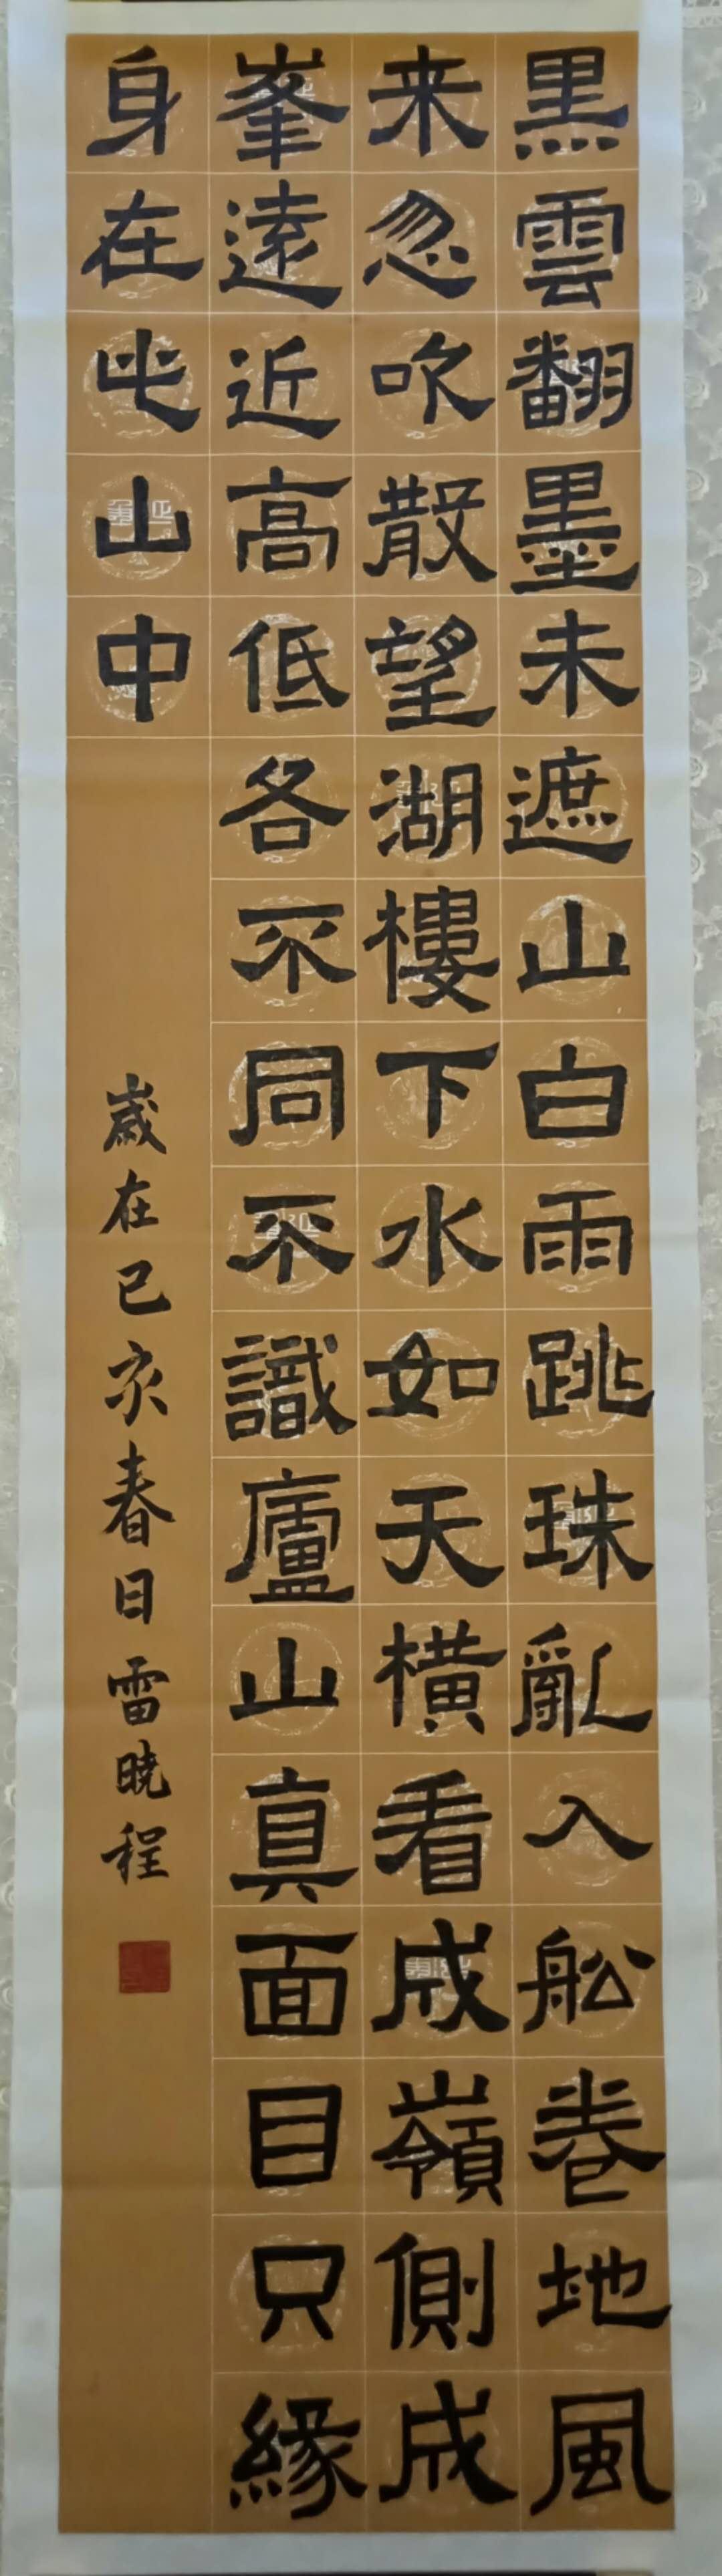 黑雲翻墨未遮山白雨跳珠亂入船卷地風
来忽吹散望湖樓下水如天橫看成嶺側成
峯遠近高低各不同不識廬山真面目只緣
身在此山中
歲在己亥春日雷曉程